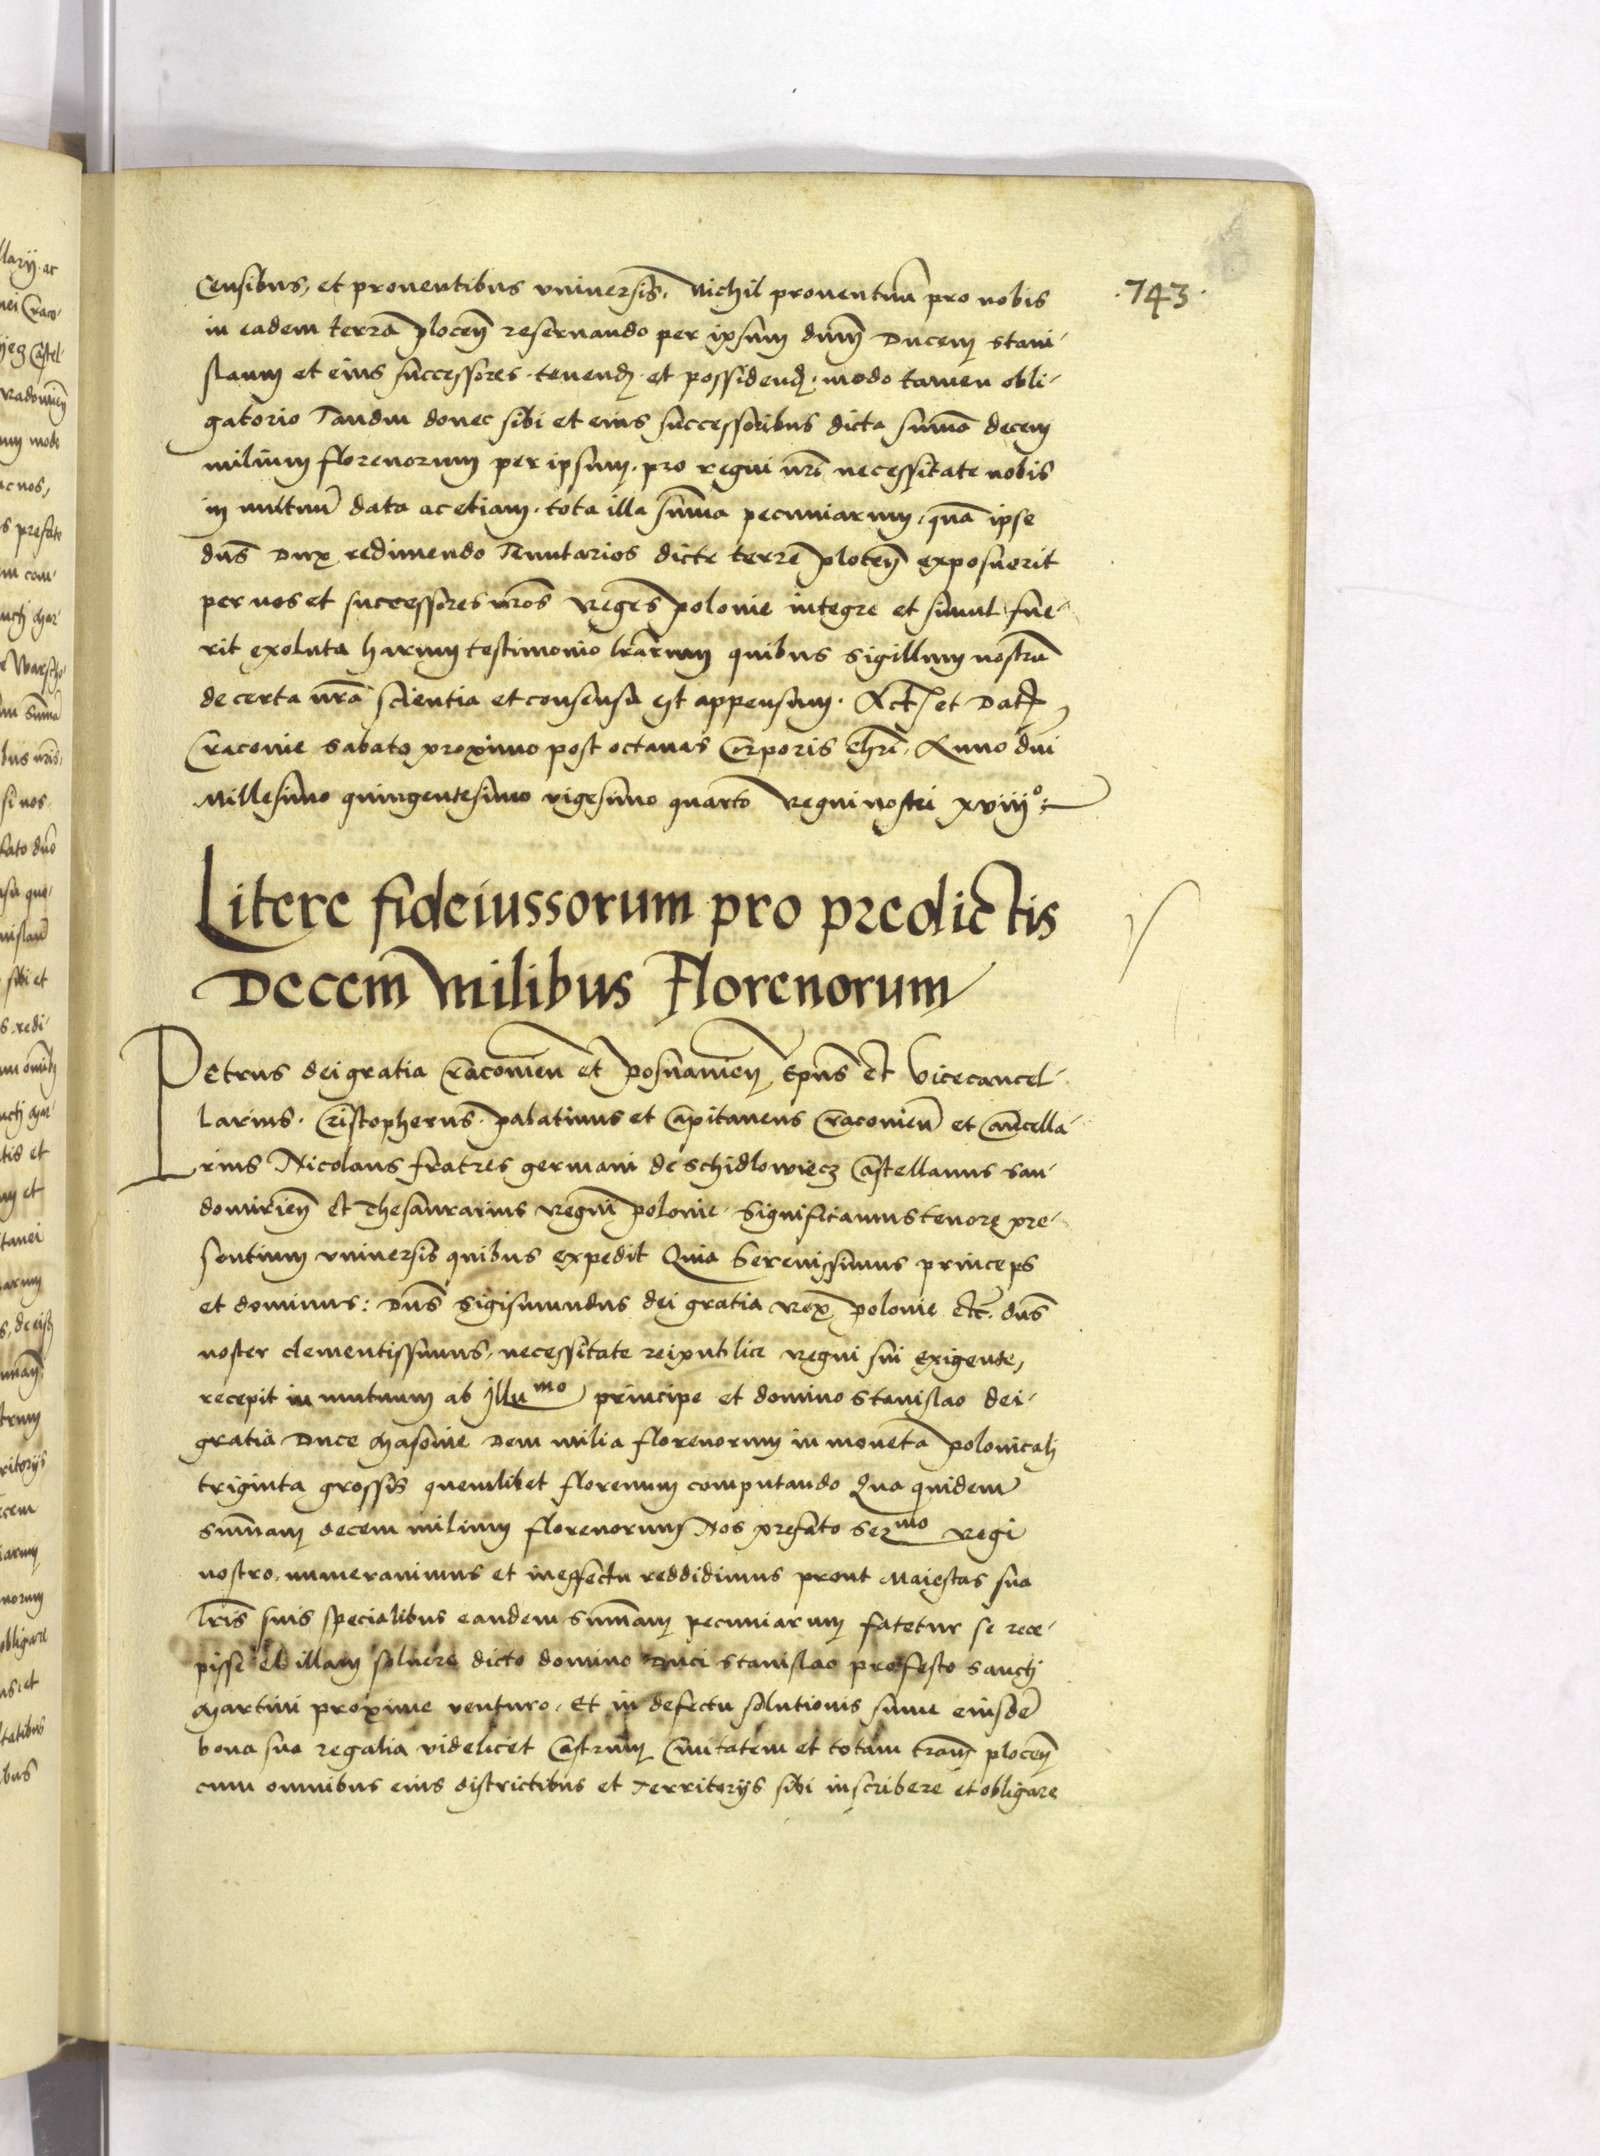 Censibus, et prouentibus vniuersis. Nichil prouentuū pro nobis
.743.
in eadem terra ploceñ reseruando per ipsum dnm̄ Ducem stani-
slaum et eius successores. tenend. et possidend. modo tamen obli-
gatorio Tamdiu donec sibi et eius successoribus dicta summa decem
milium florenorum per ipsum. pro regni nrī necessitate nobis
in mutuū data ac etiam. tota illa summa pecuniarum, quā ipse
dns̄ Dux redimendo Tenutarios dicte terre ploceñ exposuerit
per nos et successores nrōs Reges polonie integre et simul fue-
rit exoluta harum testimonio lrārum quibus sigillum nostrū
de certa nrā scientia et consensu est appensum. Act. et Dat.
Cracouie sabato proximo post octauas Corporis chrī. Anno dnī
Millesimo quingentesimo vigesimo quarto Regni nostri xviijº
Litere fideiussorum pro predictis
Decem Milibus Florenorum
Petrus dei gratia Cracouieñ et posnanieñ Epus̄ et Vicecancel-
larius. Cristopherus. palatinus et Capitaneus Cracouieñ et Cancella-
rius Nicolaus fratres germani de Schidlowiecz Castellanus san-
domirieñ et Thesaurarius Regni polonie. Significamus tenore pre-
sentium vniuersis quibus expedit Quia Serenissimus princeps
et dominus: Dns̄ Sigismundus dei gratia Rex polonie etc. dns̄
noster clementissimus, necessitate reipublice regni sui exigente,
recepit in mutuum ab Illumo principe et domino Stanislao dei-
gratia Duce Masouie Decem milia florenorum in moneta polonicali
triginta grossis quemlibet florenum computando Qua quidem
summam decem milium florenorum Nos prefato Sermo Regi
nostro. numerauimus et in effectu reddidimus prout Maiestas sua
lrīs suis specialibus eandem summam pecuniarum fatetur se rece-
pisse et illam soluere dicto domino Duci Stanislao pro festo sancti
Martini proxime venturo. Et in defectu solutionis summe eiusdē
bona sua regalia videlicet Castrum Ciuitatem et totam trām ploceñ
cum omnibus eius districtibus et Territorijs sibi inscribere et obligare